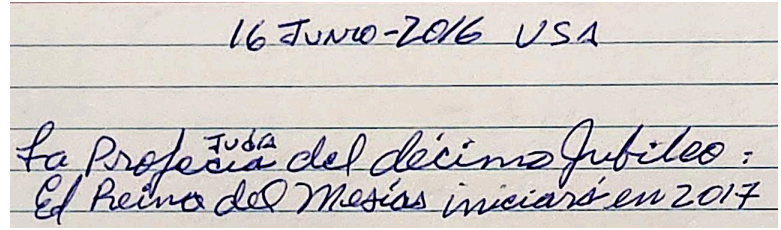 16 Junio-2016 USA
La Profecía Judía del décimo Jubileo:
El Reino del Mesías iniciará en 2017